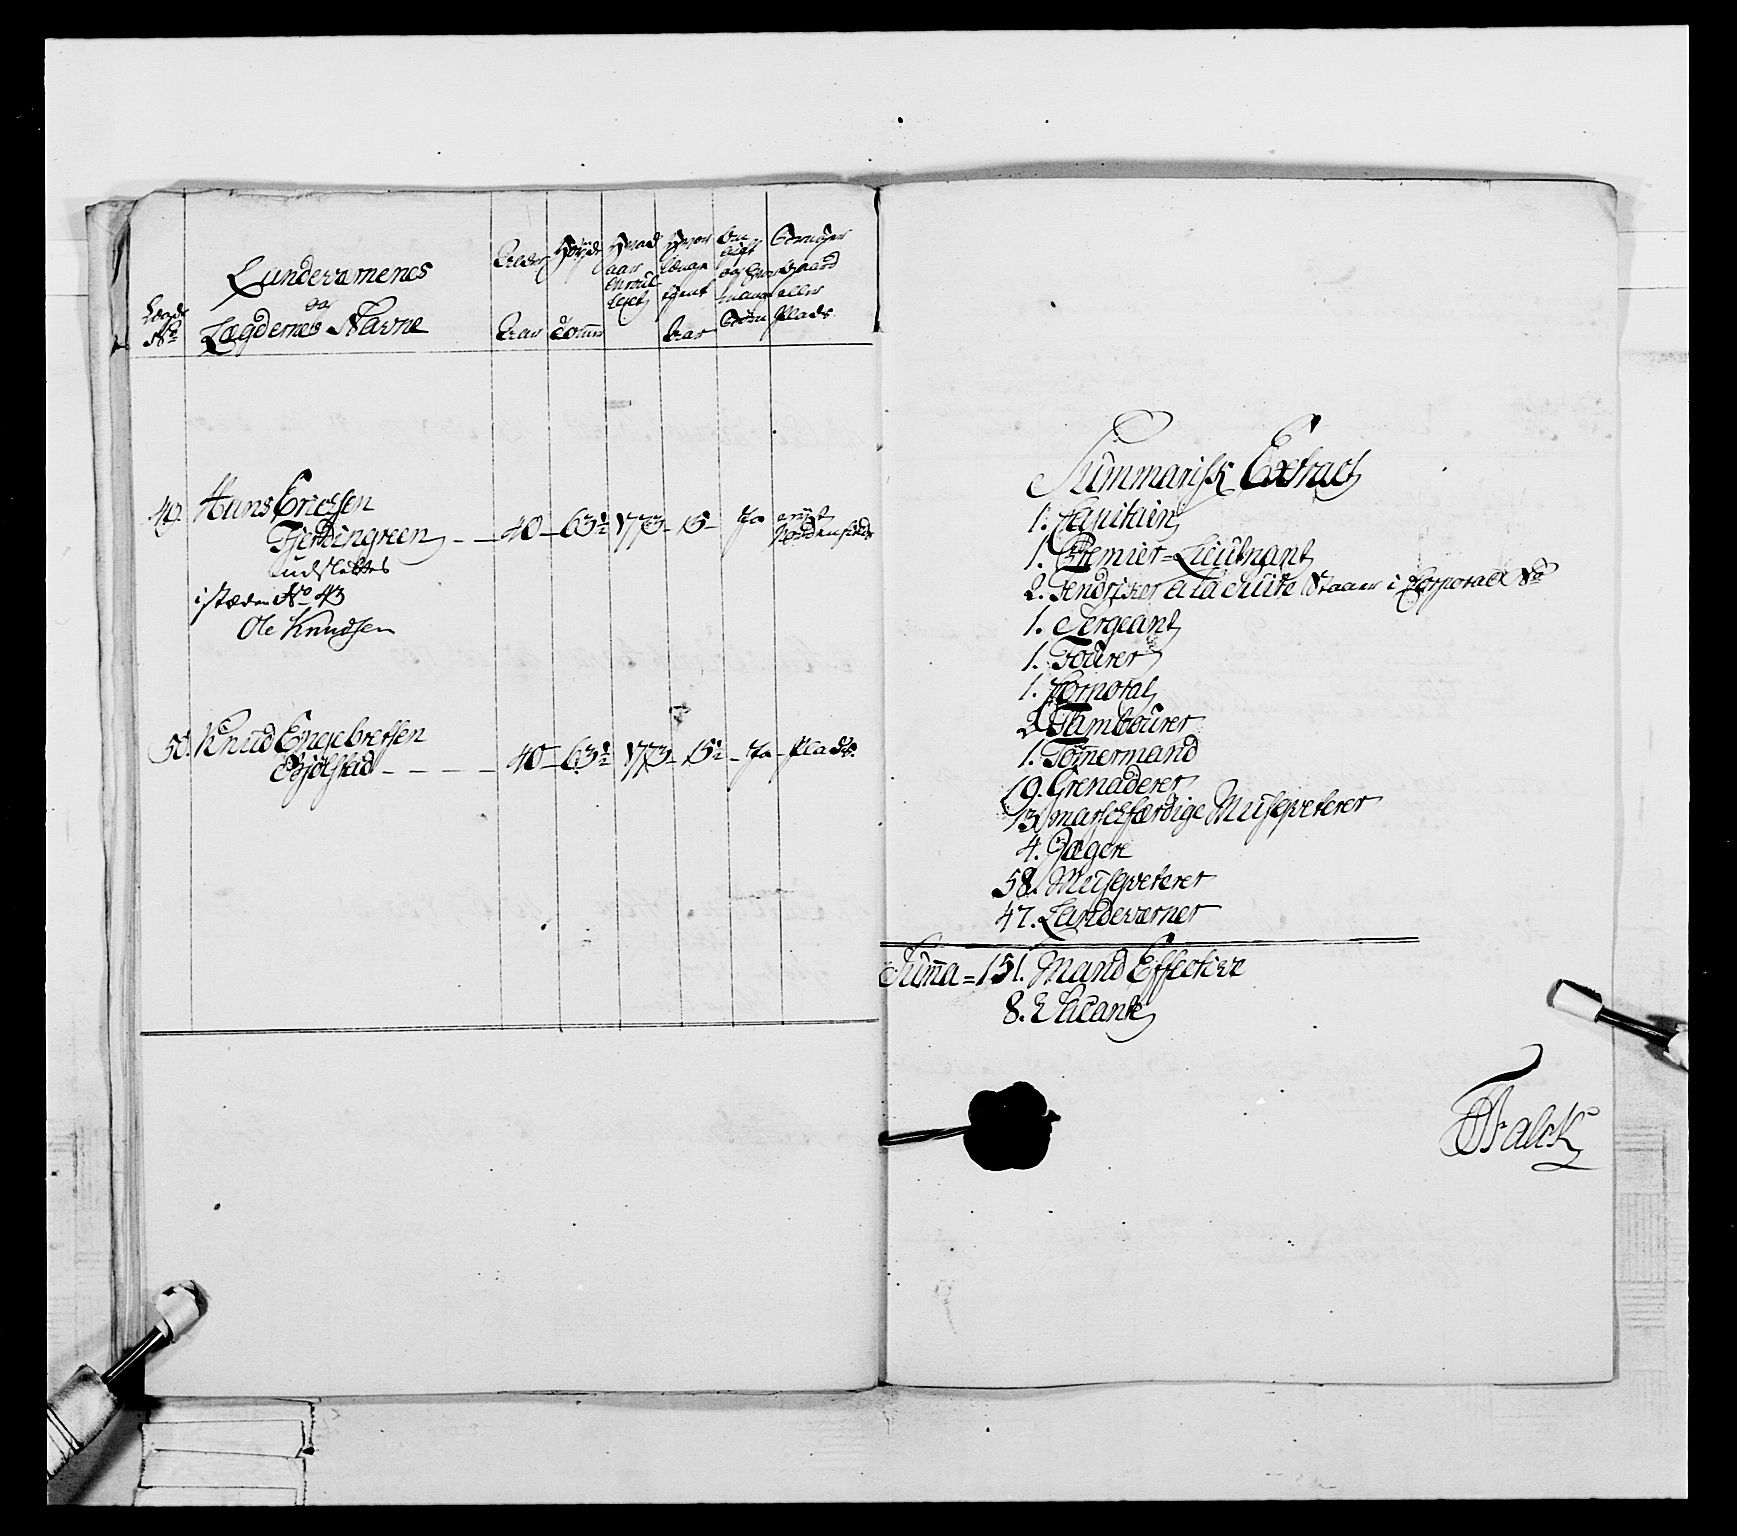 Lægds No
Landeværnenes
og
Lægdernes Navne
Alder
Aar
Høyde
Tomr
Hvad
aar
enroul
leret
Hvor
længe
tient
Aar
Om
gift
og hvor
mange
Børn
Bruger
Gaard
eller
Plads
49. Hans Ericksen
Fjerdingreen - - 40 - 63½ 1773 - 15 - Ja
udslettes
i stæden No 43
Ole Knudsen
50. Knud Engebretsen
Bjølstad - - - - 40 - 63½ 1773 - 15½ - Ja - Plads
Summarisk Extract
1. Capitain
1. Premier=Lieutnant
2. Fendricker a la Suite staaer i Corporals No
1. Sergeant
1. Fourer
1. Corporal
2. Tambourer
1. Tømermand
19. Grenaderer
13. marschfærdige Musqveterer
4. Jægere
58. Musqveterer
47. Landeværner
Suma = 151. Mand Effective
8. Vacante
Falck